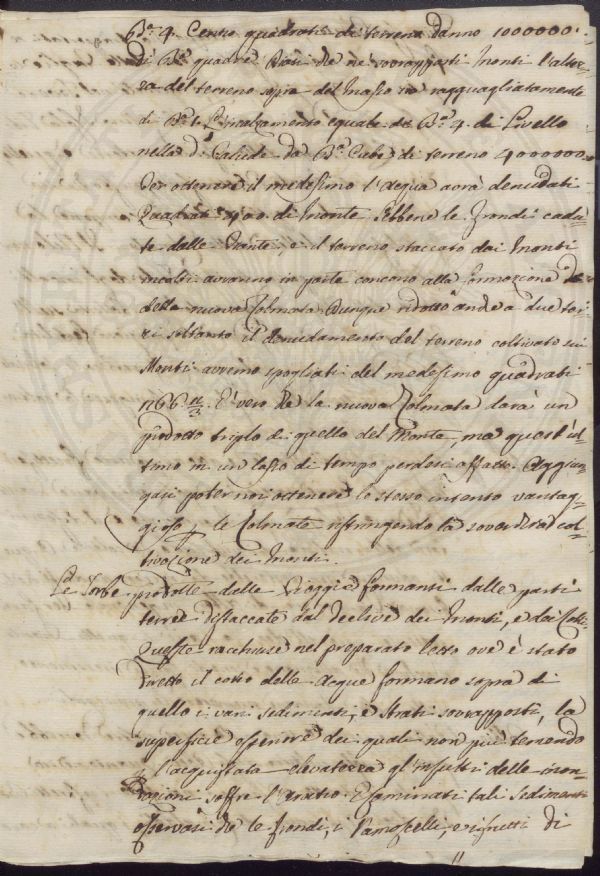 Ba. 4. Cento quadrati di terreno danno 1000000.
di Ba. quadre Dati che ne' sovrapposti Monti l'altez-
za del terreno sopra del Masso sia ragguagliatamente
di Ba. 1. L'inalzamento equale di Ba. 4. di Livello
nella da Ba. Cube di terreno 4000000.
Per ottenere il medesimo l'acqua avrà denudati
Quadrati 400. di Monte. Sebbene le Frondi cadu-
te dalle Piante, e il terreno staccato dai Monti
incolti avranno in parte concorso alla formazione
della nuova Colmata. Dunque ridotto anche a due ter-
zi soltanto il denudamento del terreno coltivato sui
Monti avremo spogliati del medesimo quadrati
È vero che la nuova Colmata darà un
prodotto triplo di quello del Monte, ma quest'ul-
timo in un lasso di tempo perdesi affatto. Aggiun-
gasi poter noi ottenere lo stesso intento vantag-
gioso le Colmate ristringendo la soverchia col-
tivazione dei Monti.
Le Torbe prodotte dalle Pioggie formansi dalle parti
terree distaccate dal declive dei Monti, e dei Colli.
Queste racchiuse nel preparato letto ove è stato
diretto il corso delle Acque formano sopra di
quello i vari sedimenti, e strati sovrapposti, la
superficie de' quali non più temendo
l'acquistata elevatezza gl'insulti delle inon-
dazioni soffre l'aratro. Esaminati tali sedimenti
osservasi che le frondi, i ramoscelli, di